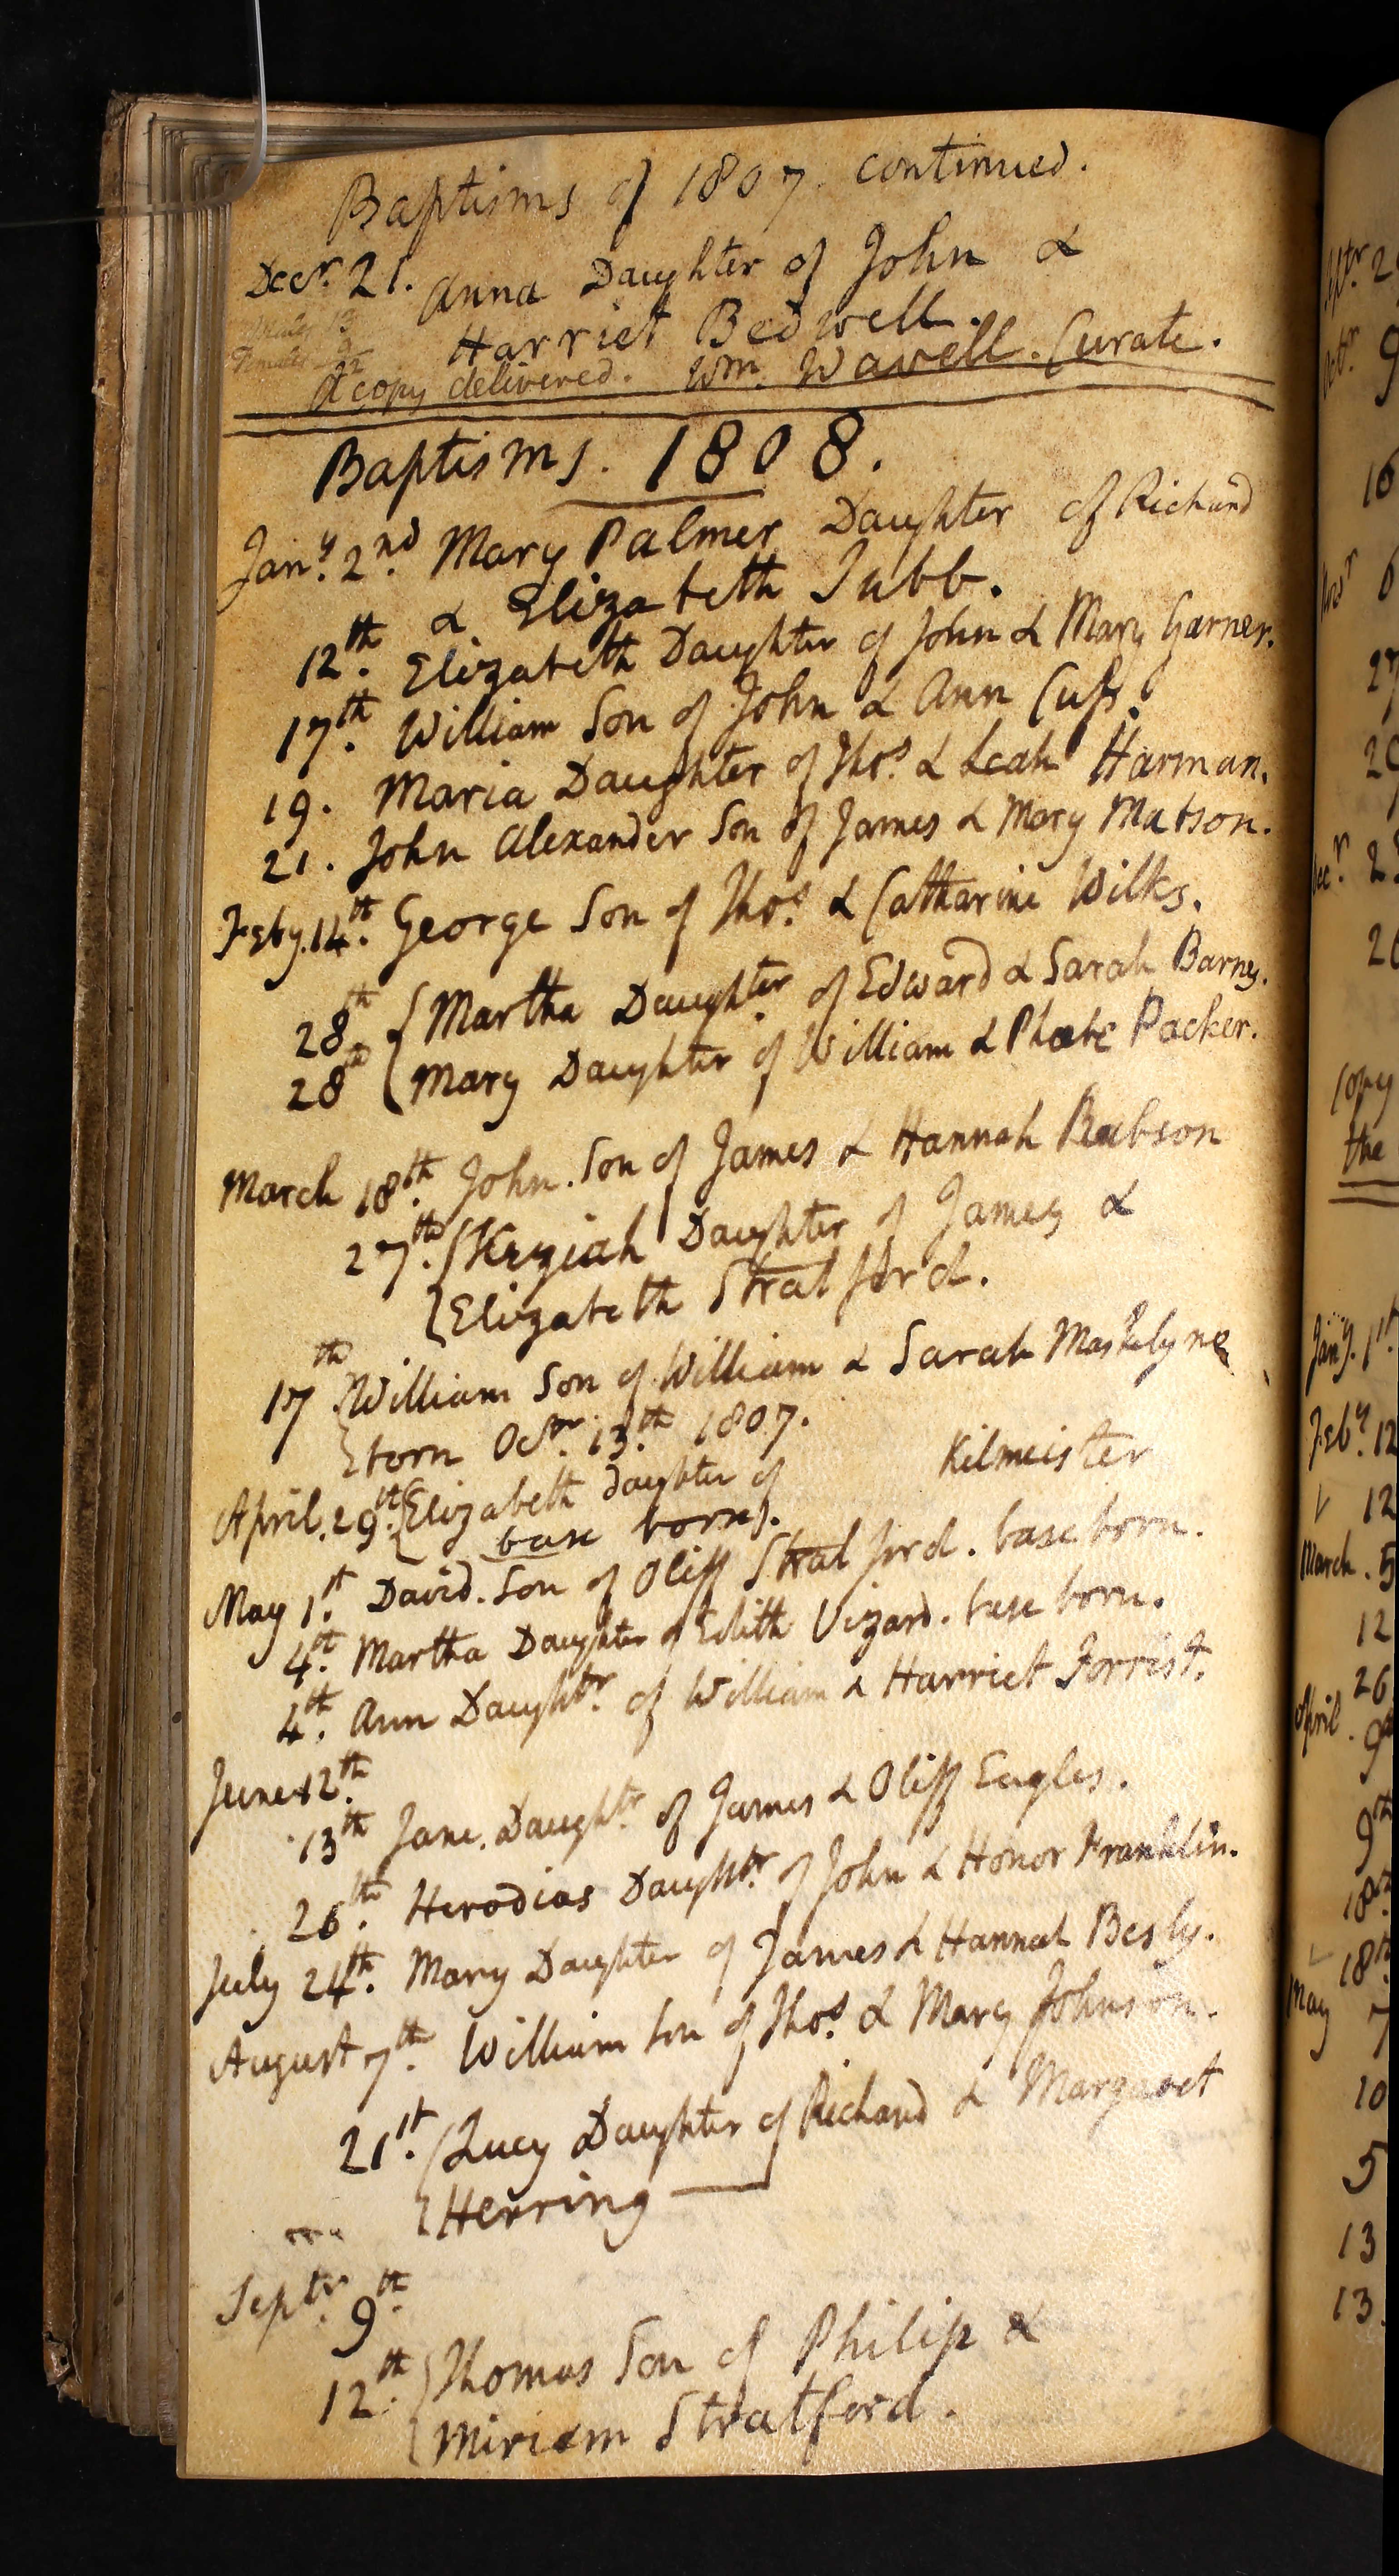 Baptisms of 1807. continued.
Decr. 21. Anna Daughter of John &
Harriet Bedwell.
Males 13
Females 9
22
A copy delivered. Wm. Wavell. Curate.
Baptisms. 1808.
Jany. 2nd. Mary Palmer Daughter of Richard
& Elizabeth Tubb.
12th. Elizabeth Daughter of John & Mary Garner.
17th. William Son of John & Ann Cuss.
19. Maria Daughter of Thos. & Leah Harman.
21. John Alexander Son of James & Mary Matson.
Feby. 14th. George Son of Thos. & Catharine Wilks.
28th Martha Daughter of Edward & Sarah Barnes.
28th Mary Daughter of William & Phœbe Packer.
March 18th. John. Son of James & Hannah Babson
27th. Keziah Daughter of James &
Elizabeth Stratford.
17th William Son of William & Sarah Maskelyne
born Octr. 13th. 1807.
April. 29th. Elizabeth daughter of Kilmeister
base born.
May 1st. David. Son of Oliff Stratford. base born.
4th. Martha Daughter of Edith Vizard. base born.
4th. Ann Daughtr. of William & Harriet Forrist.
June 12th.
13th Jane. Daughtr. of James & Oliff Eagles.
26th. Herodias Daughtr. of John & Honor Franklin.
July 24th. Mary Daughter of James & Hannah Besly.
August 7th. William Son of Thos. & Mary Johnson.
21st. Lucy Daughter of Richard & Margaret
Herring
Septr. 9th.
12th. Thomas Son of Philip &
Miriam Stratford.